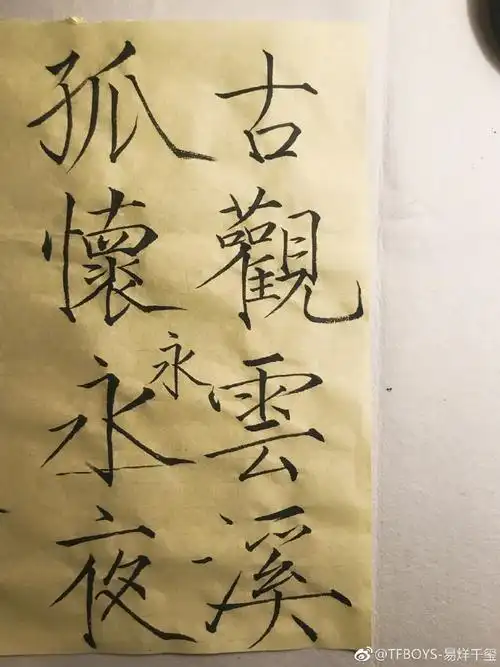 古觀雲溪
孤懷永夜
永
@TFBOYS-易烊千玺